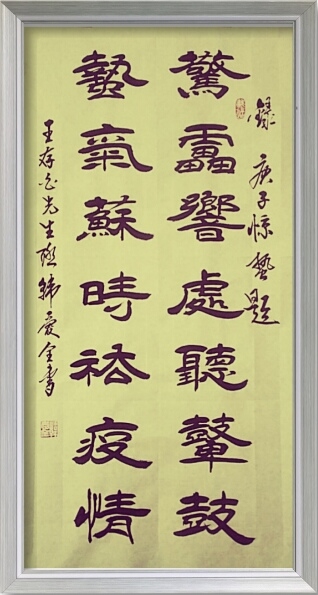 錄 庚子惊蟄題
驚靁響處聽鼙鼓
蟄氣蘇時祛疫情
王存先生联 韩爱全書